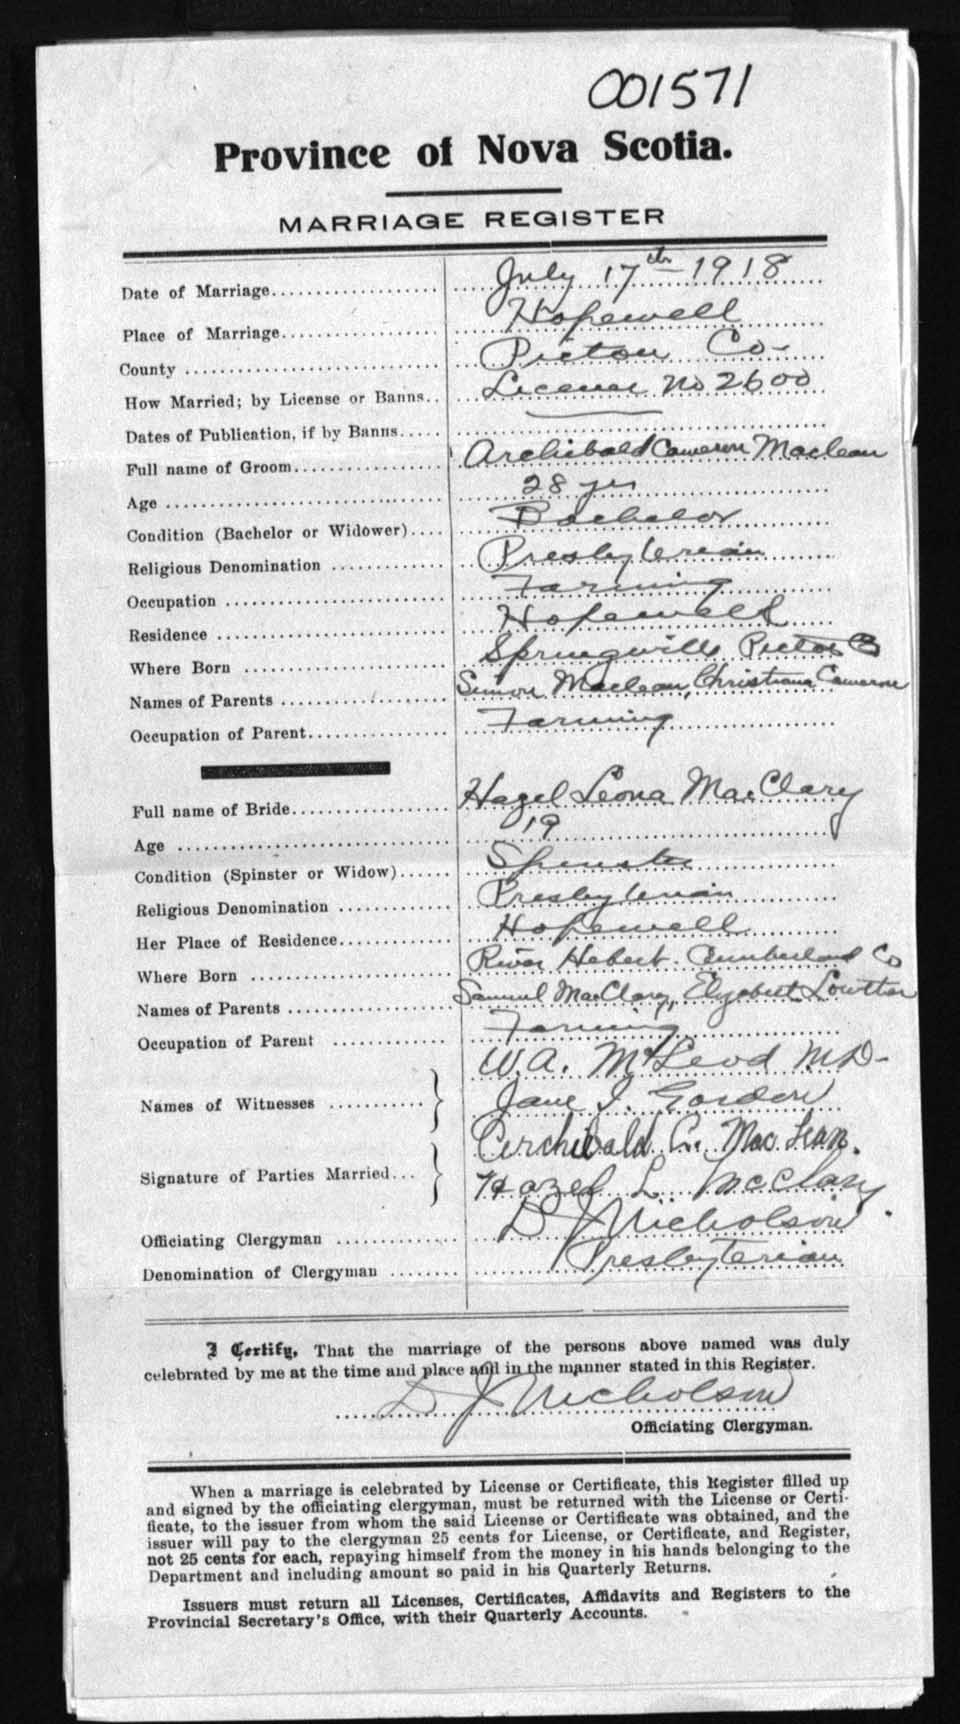 001571
Province of Nova Scotia.
MARRIAGE REGISTER
Date of Marriage July 17th 1918
Place of Marriage Hopewell
County Pictou Co-
How Married; by License or Banns.. License No 2600
Dates of Publication, if by Banns
Full name of Groom Archibald Cameron Maclean
Age 28 yrs
Condition (Bachelor or Widower) Bachelor
Religious Denomination Presbyterian
Occupation Farming
Residence Hopewell
Where Born Springville Pictou Co
Names of Parents Simon Maclean, Christiana Cameron
Occupation of Parent Farming
Full name of Bride Hazel Leona MacClary
Age 19
Condition (Spinster or Widow) Spinster
Religious Denomination Presbyterian
Her Place of Residence Hopewell
Where Born River Hebert. Cumberland Co
Names of Parents Samuel MacClary, Elizabeth Lowther
Occupation of Parent Farming
W.A. McLeod M.D-
Names of Witnesses Jane I. Gordon
Archibald C. MacLean.
Signature of Parties Married... Hazel L. McClary
Officiating Clergyman D J Nicholson.
Denomination of Clergyman Presbyterian
I Certify, That the marriage of the persons above named was duly
celebrated by me at the time and place and in the manner stated in this Register.
D J Nicholson
Officiating Clergyman.
When a marriage is celebrated by License or Certificate, this Register filled up
and signed by the officiating clergyman, must be returned with the License or Certi-
ficate, to the issuer from whom the said License or Certificate was obtained, and the
issuer will pay to the clergyman 25 cents for License, or Certificate, and Register,
not 25 cents for each, repaying himself from the money in his hands belonging to the
Department and including amount so paid in his Quarterly Returns.
Issuers must return all Licenses, Certificates, Affidavits and Registers to the
Provincial Secretary's Office, with their Quarterly Accounts.